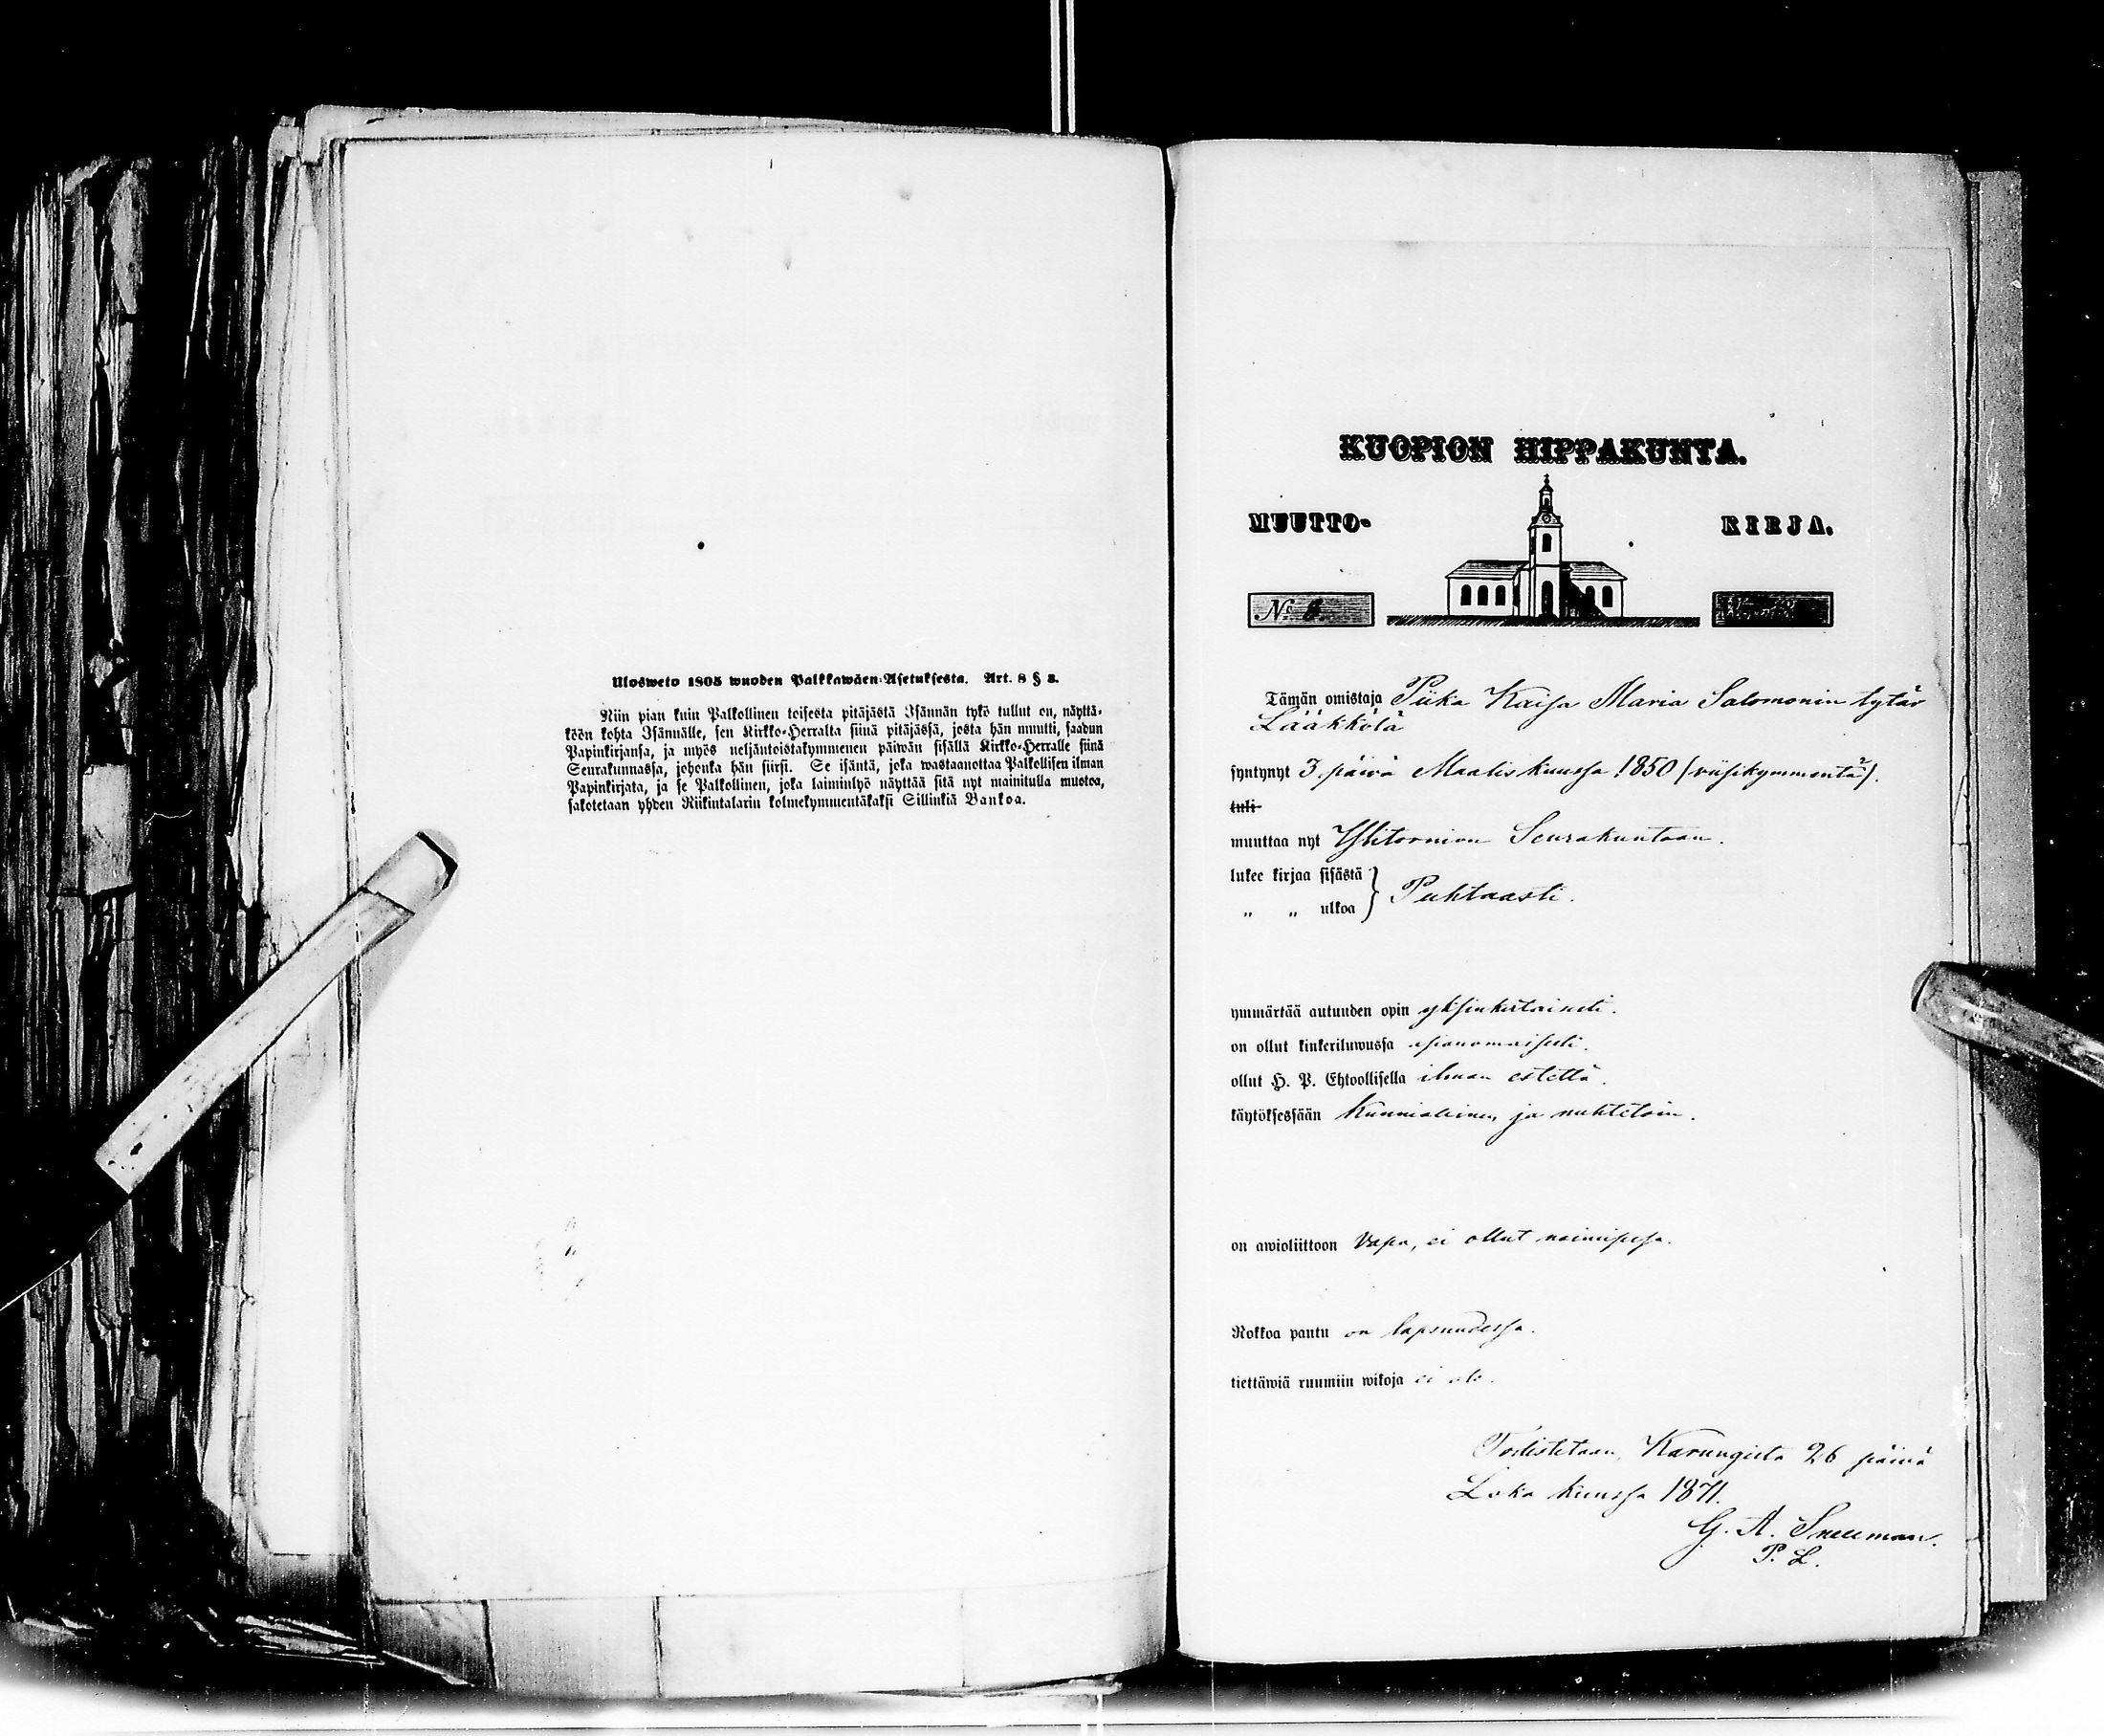 Ulosweto 1805 wuoden Palkkawäen-Asetuksesta. Art. 8 § 3.
Niin pian kuin Palkollinen toisesta pitäjästä Isännän tykö tullut on, näyttä-
köön kohta Isännälle, sen Kirkko-Herralta siinä pitäjässä, josta hän muutti, saadun
Papinkirjansa, ja myös neljäntoistakymmenen päiwän sisällä Kirkko-Herralle siinä
Seurakunnassa, johonka hän siirsi. Se isäntä, joka wastaanottaa Palkollisen ilman
Papinkirjata, ja se Palkollinen, joka laiminlyö näyttää sitä nyt mainitulla muotoa,
sakotetaan yhden Riikintalarin kolmekymmentäkaksi Sillinkiä Bankoa.
KUOPION HIPPAKUNTA.
MUUTTO- KIRJA.
No
Tämän omistaja Piika Kaisa Maria Salomonin tytär
Lääkkölä
syntynyt 3. päivä Maalis kuussa 1850 (viisikymmentä).
tuli
muuttaa nyt Ylitornion Seurakuntaan.
lukee kirjaa sisästä
" " ulkoa } Puhtaasti.
ymmärtää autuuden opin yksinkertaisesti.
on ollut kinkeriluwussa asianomaisesti.
ollut H. P. Ehtoollisella ilman estettä.
käytöksessään kunniallinen ja nuhtetoin.
on awioliittoon vapa, ei ollut naimisessa.
Rokkoa pantu on lapsuudessa.
tiettäwiä ruumiin wikoja ei ole.
Todistetaan, Karungista 26 päivä
Loka kuussa 1871.
G. A. Sneuman.
P. L.